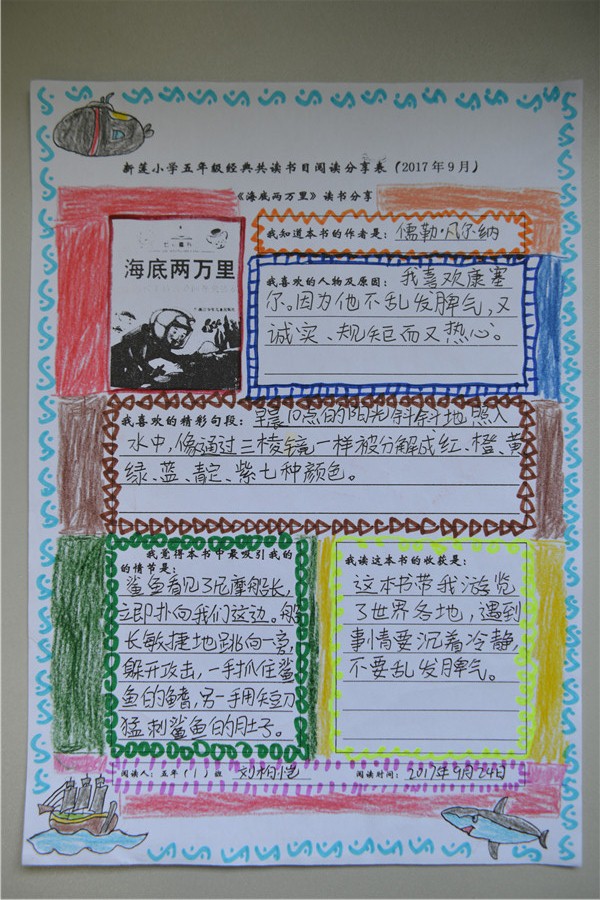 新莲小学五年级经典共读书目阅读分享表（2017年9月）
《海底两万里》读书分享
海底两万里
我知道本书的作者是：儒勒·凡尔纳
我喜欢的人物及原因：我喜欢康塞
尔。因为他不乱发脾气，又
诚实、规矩而又热心。
我喜欢的精彩句段：早晨10点的阳光斜斜地照入
水中，像通过三棱镜一样被分解成红、橙、黄
绿、蓝、靛、紫七种颜色。
我觉得本书中最吸引我的
的情节是：
鲨鱼看见了尼摩船长，
立即扑向我们这边。船
长敏捷地跳向一旁，
躲开攻击，一手抓住鲨
鱼的鳍，另一手用短刀
猛刺鲨鱼的肚子。
我读这本书的收获是：
这本书带我游览
了世界各地，遇到
事情要沉着冷静，
不要乱发脾气。
阅读人：五年（1）班 刘桁恺
阅读时间：2017年9月24日